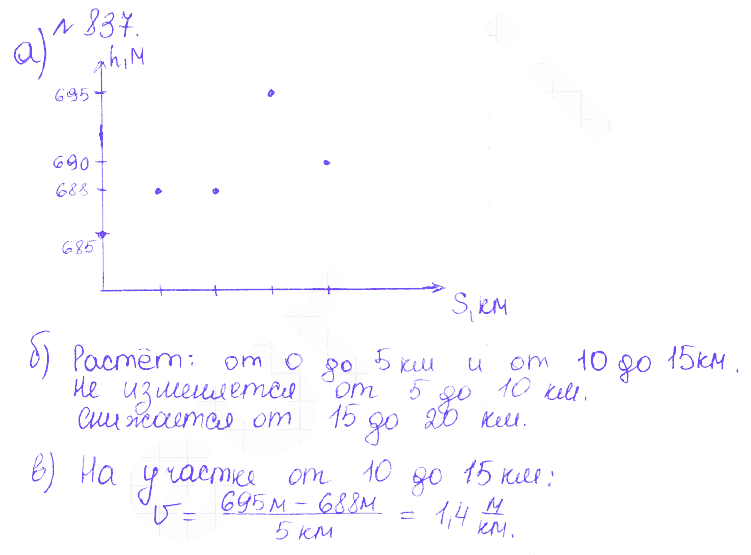 № 837.
а)
h, м
695
690
688
685
S, км
б) Растёт: от 0 до 5 км и от 10 до 15 км.
Не изменяется от 5 до 10 км.
Снижается от 15 до 20 км.
в) На участке от 10 до 15 км:
V = (695м – 688м) / 5 км = 1,4 м/км.